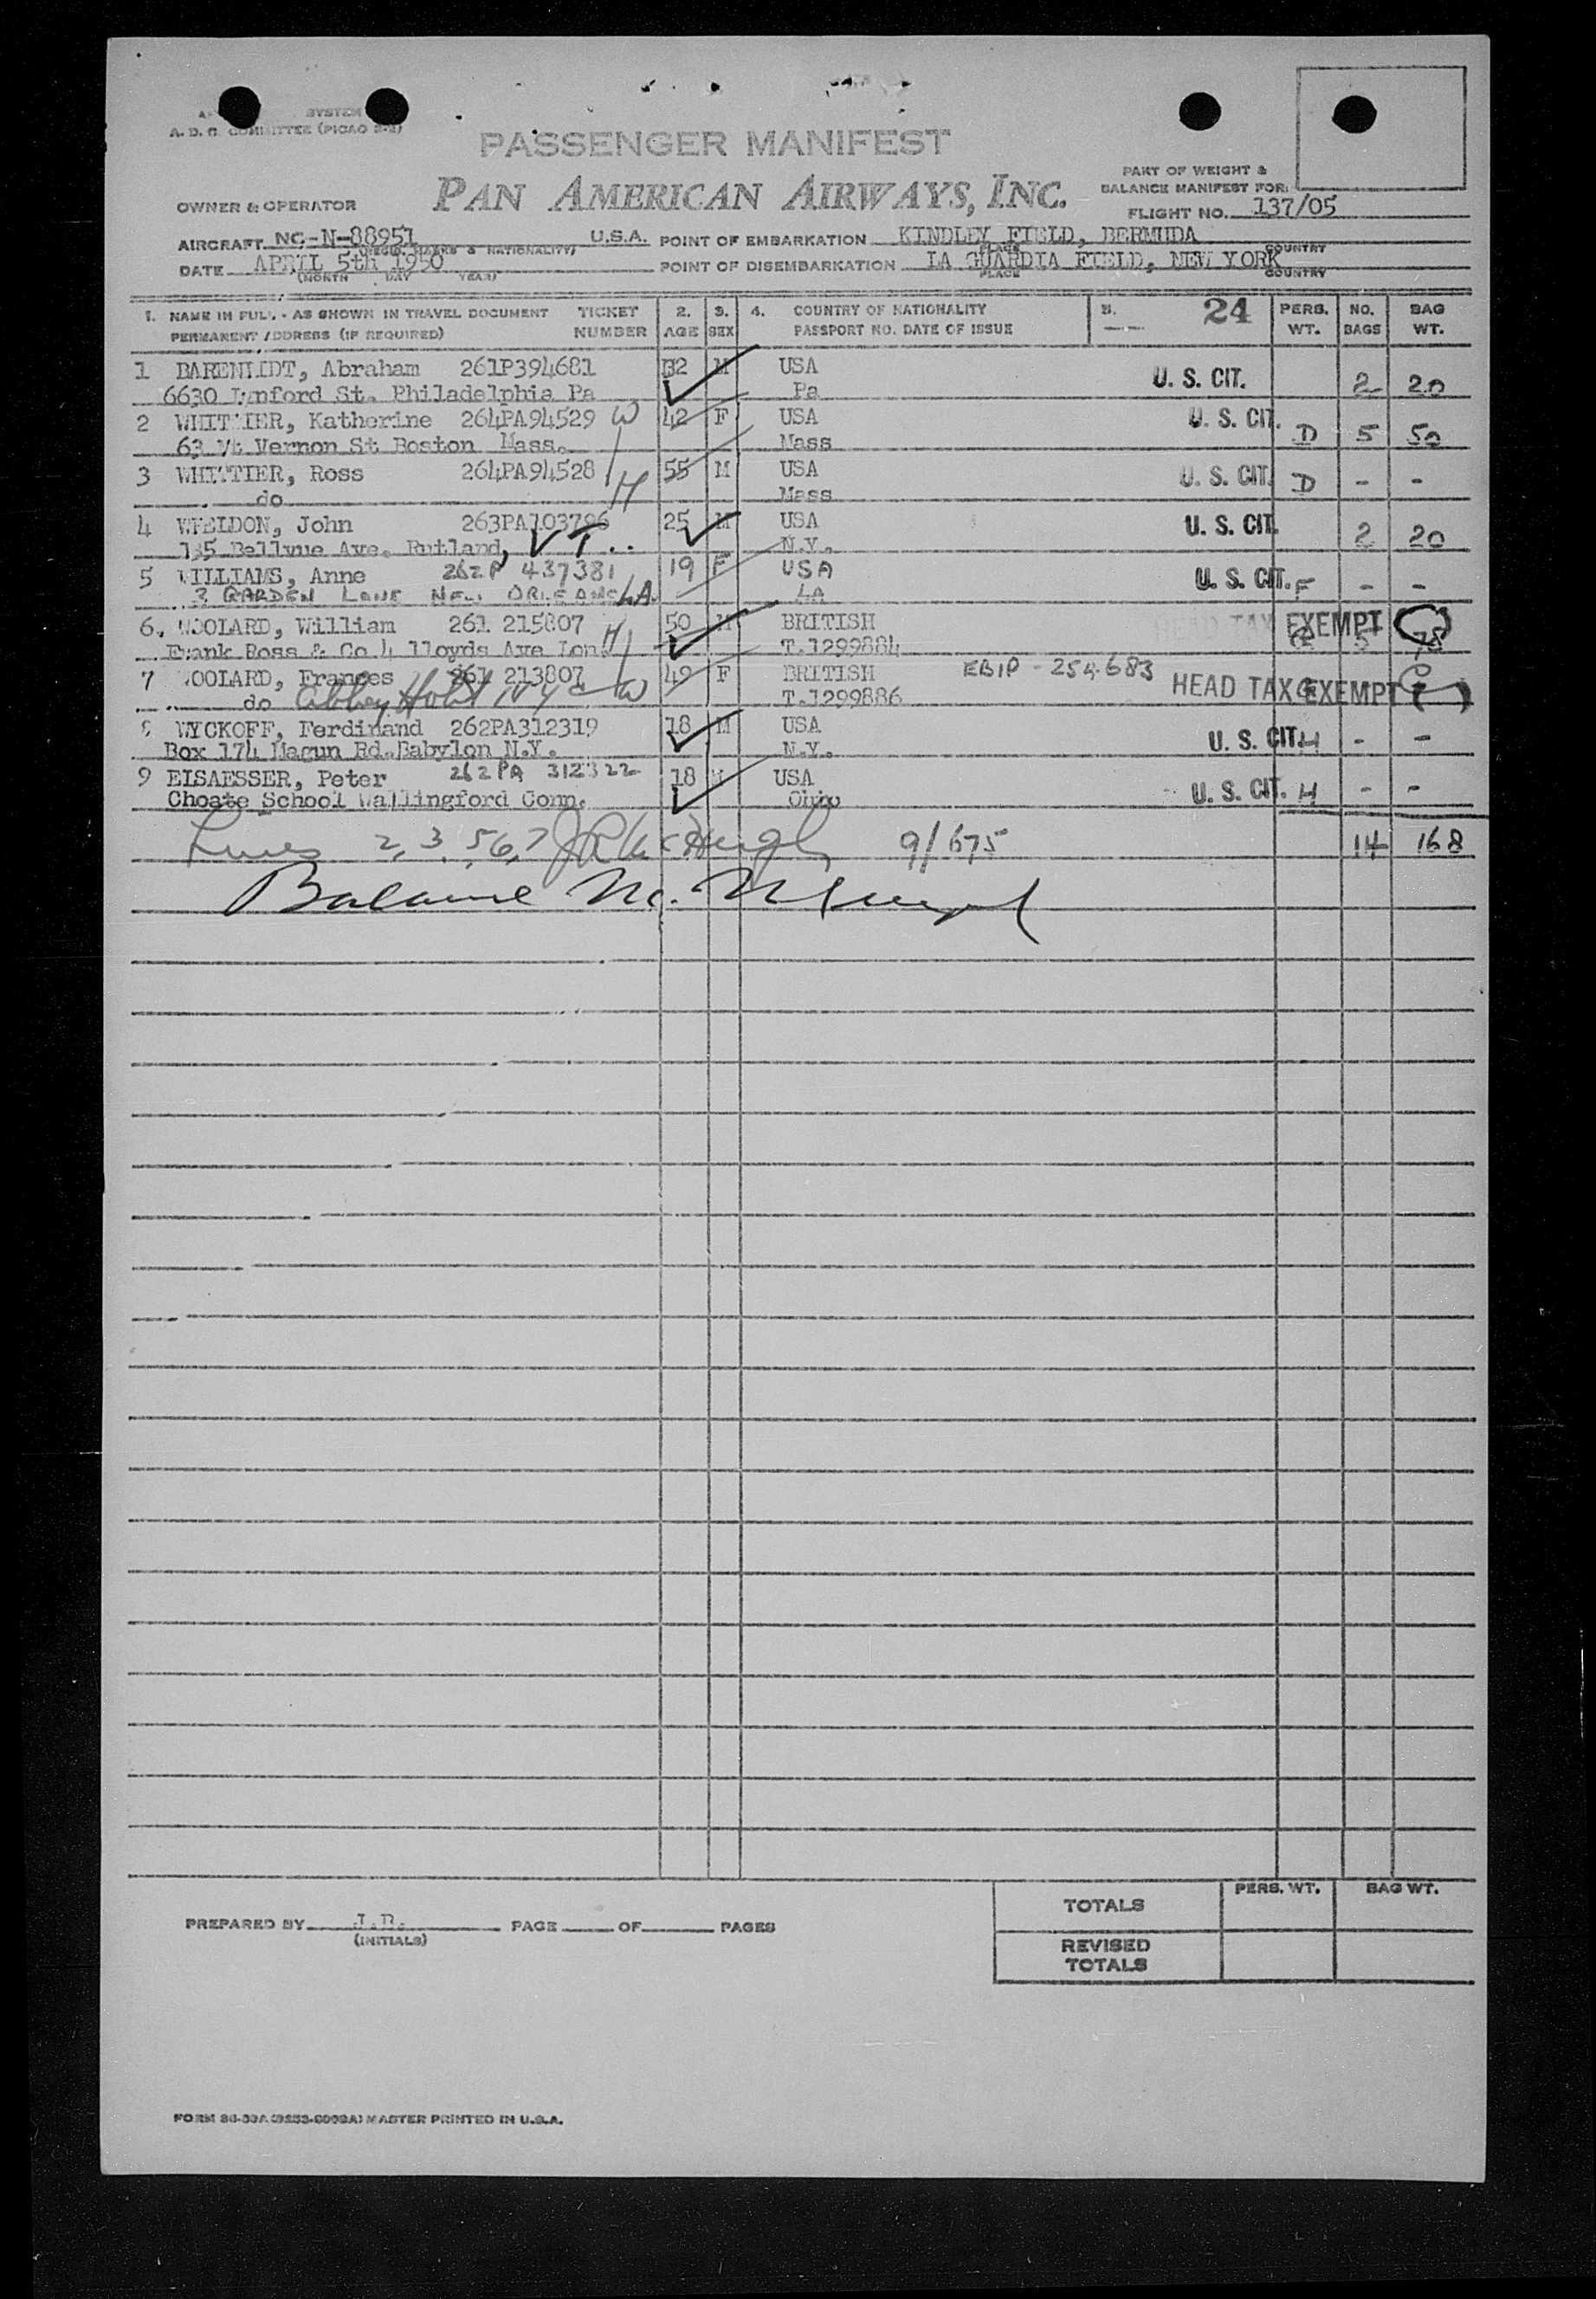 SYSTEM
A. D. C. COMMITTEE (PICAO 2-2)
PASSENGER MANIFEST
PAN AMERICAN AIRWAYS, INC.
PART OF WEIGHT &
BALANCE MANIFEST FOR:
OWNER & OPERATOR
FLIGHT NO. 137/05
AIRCRAFT NC-N-88951 U.S.A. POINT OF EMBARKATION KINDLEY FIELD, BERMUDA
(REGIS. MARKS & NATIONALITY) PLACE COUNTRY
DATE APRIL 5th 1950 POINT OF DISEMBARKATION LA GUARDIA FIELD, NEW YORK
(MONTH DAY YEAR) PLACE COUNTRY
1. NAME IN FULL - AS SHOWN IN TRAVEL DOCUMENT TICKET 2. 3. 4. COUNTRY OF NATIONALITY 5. 24 PERS. NO. BAG
PERMANENT ADDRESS (IF REQUIRED) NUMBER AGE SEX PASSPORT NO. DATE OF ISSUE WT. BAGS WT.
1 Abraham 261P394681 32 M USA U. S. CIT. 2 20
6630 St. Philadelphia Pa Pa
2 WHITTIER, Katherine 264PA94529 W 42 F USA U. S. CIT. D 5 50
63 Mt Vernon St Boston Mass. Mass
3 WHITTIER, Ross 264PA94528 H 55 M USA U. S. CIT. D - -
do Mass
4 WHELDON, John 263PA103796 25 M USA U. S. CIT. 2 20
135 Bellvue Ave. Rutland, VT.. N.Y.
5 WILLIAMS, Anne 262P 437381 19 F USA U. S. CIT. F - -
3 GARDEN LANE NEW ORLEANS LA. LA
6. WOOLARD, William 261 215807 H 50 M BRITISH HEAD TAX EXEMPT G 5 78
Frank Ross & Co 4 lloyds Ave Lon. T.1299884
7 WOOLARD, Frances 261 213807 49 F BRITISH EBIP - 254683 HEAD TAX EXEMPT G
do Abbey Hotel NYC W T.1299886
8 WYCKOFF, Ferdinand 262PA312319 18 M USA U. S. CIT. H - -
Box 174 Magun Rd. Babylon N.Y. N.Y.
9 ELSAESSER, Peter 262PA 312322 18 M USA U. S. CIT. H - -
Choate School Wallingford Conn. Ohio
Lines 2, 3, 5, 6, 7 9/675 14 168
Balance
TOTALS PERS. WT. BAG WT.
PREPARED BY PAGE OF PAGES
(INITIALS)
REVISED
TOTALS
MASTER PRINTED IN U.S.A.